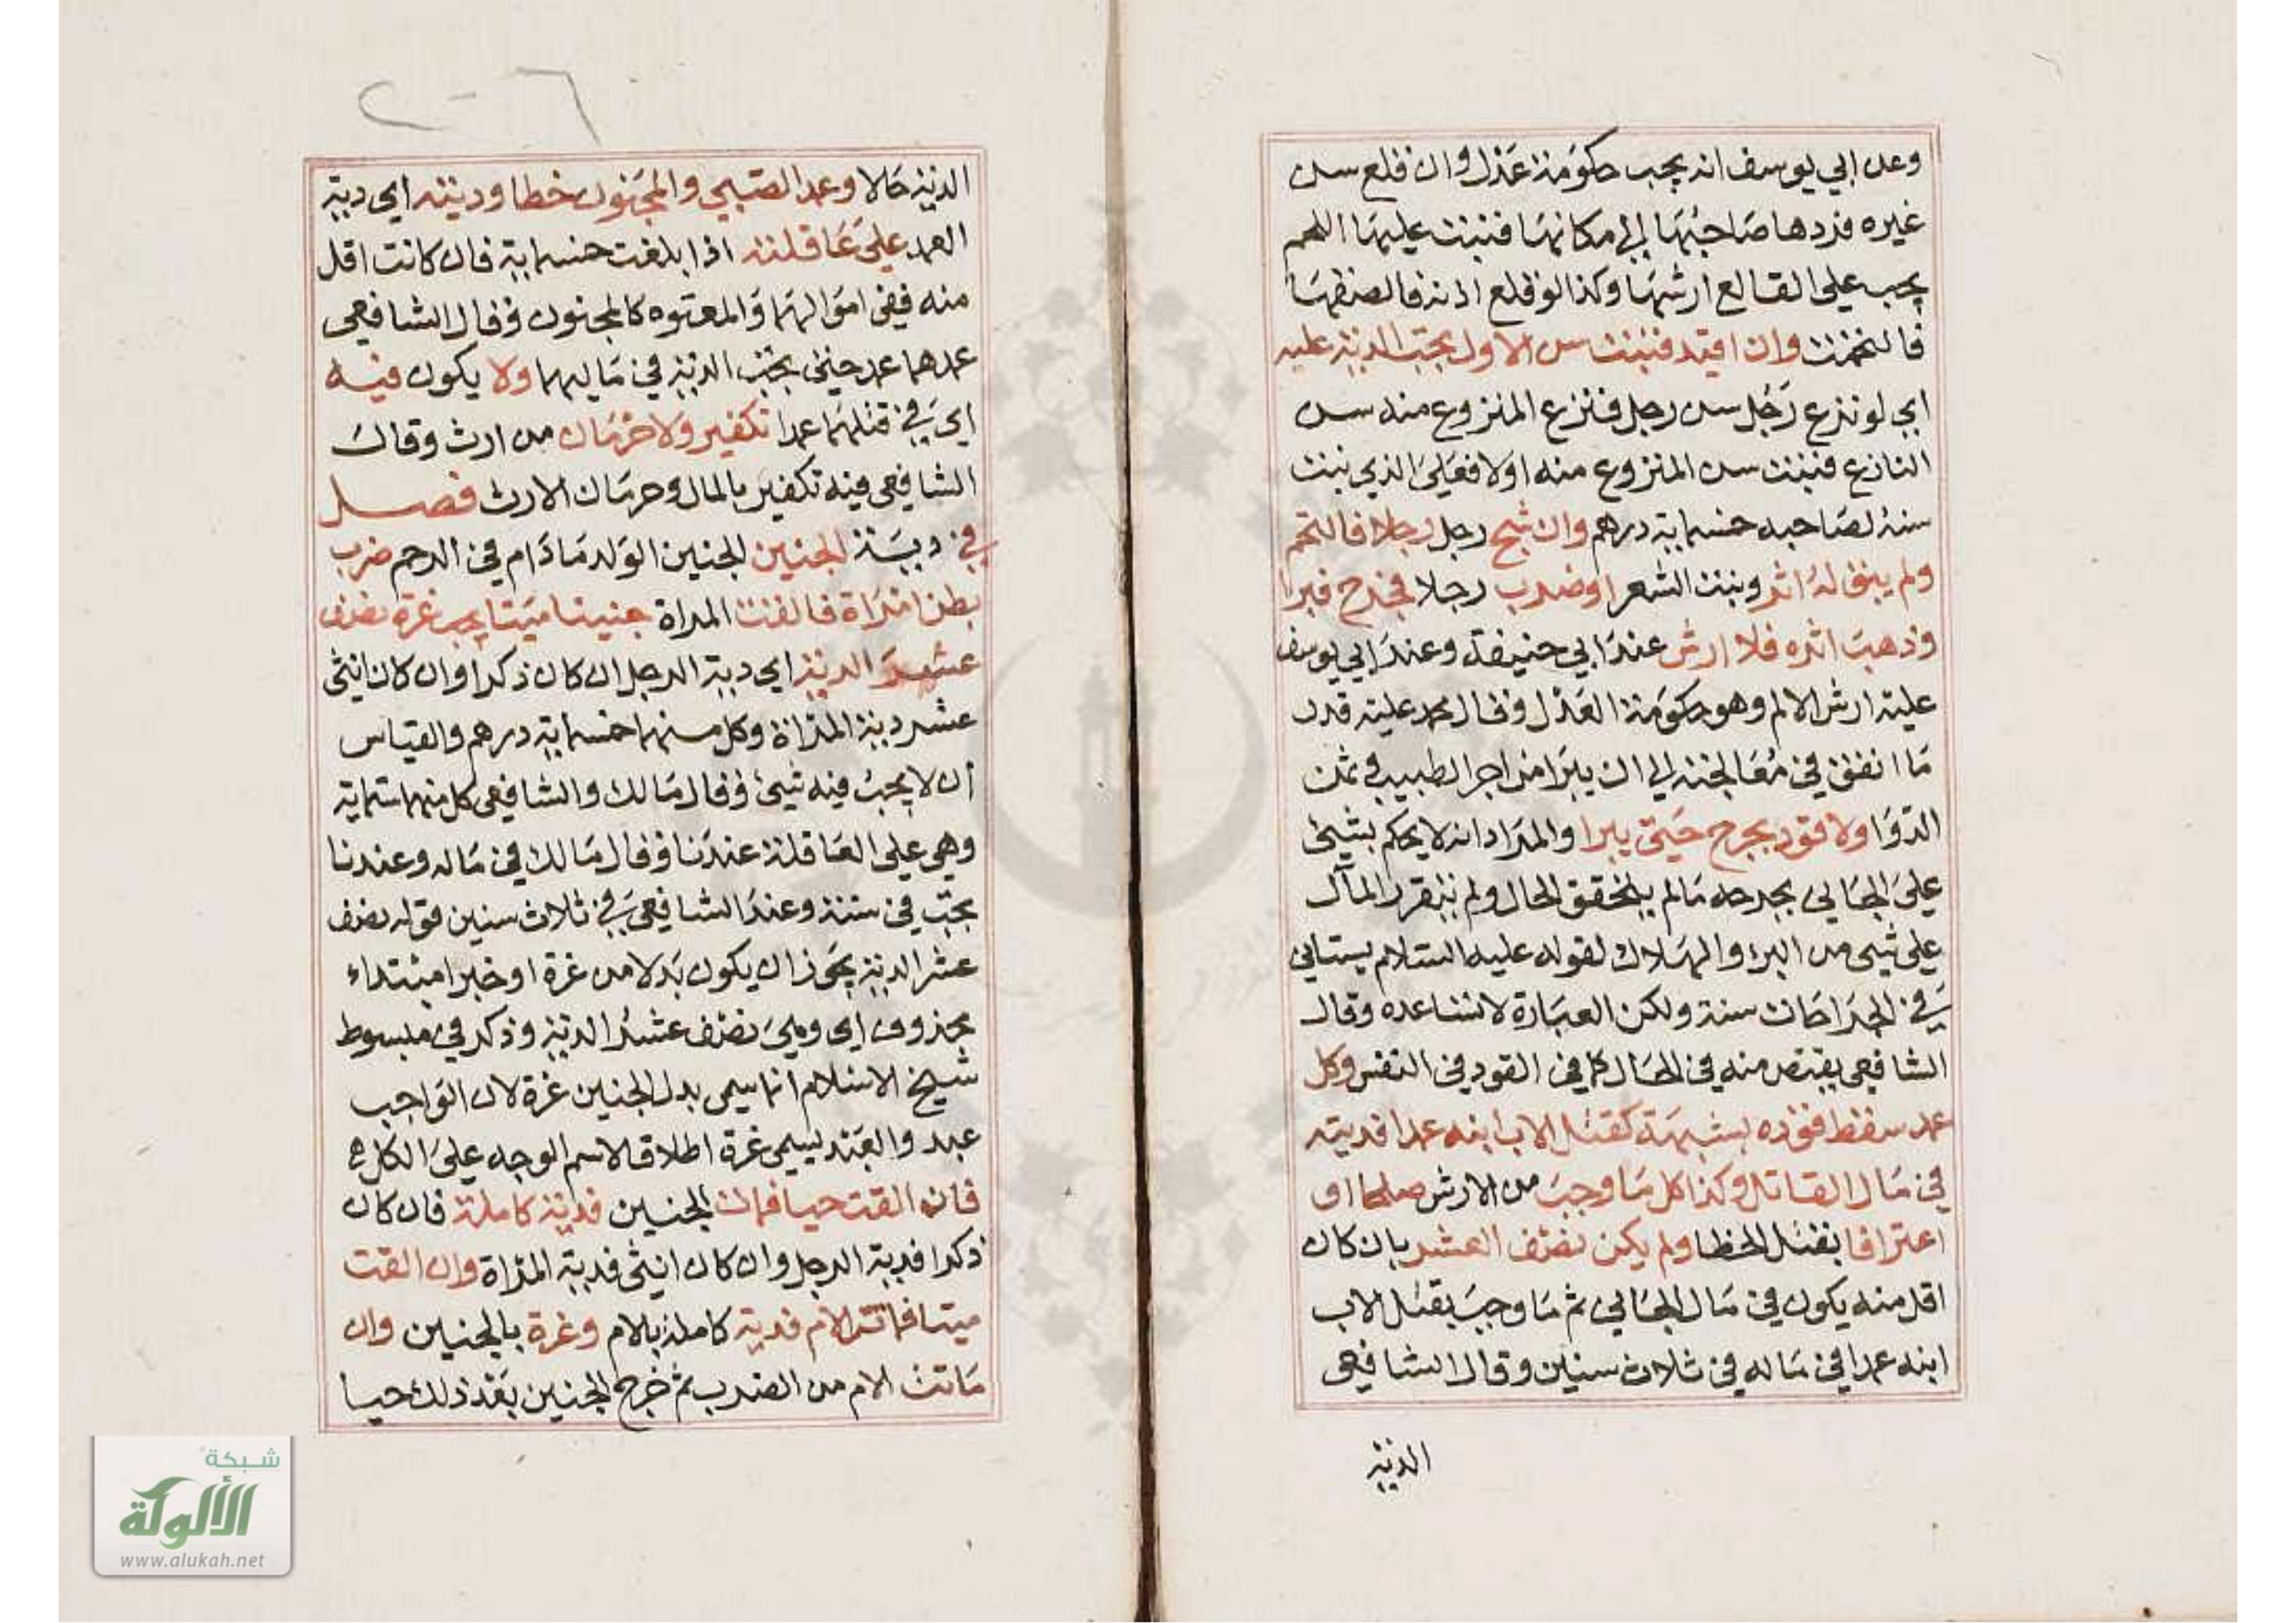 وعن ابي يوسف انه يجب حكومة عدل وان قلع سن
غيره فردها صاحبها الى مكانها فنبتت عليها اللحم
يجب على القالع ارشها وكذا لو قلع اذنه فالصقها
فالتحمت وان اقيد فنبتت سن الاول تجب الدية عليه
اي لو نزع رجل سن رجل فنزع المنزوع منه سن
النازع فنبتت سن المنزوع منه اولا فعلى الذي نبتت
سنه لصاحبه خمسماية درهم وان شج رجل رجلا فالتحم
ولم يبق له اثر ونبت الشعر او ضرب رجلا فجرح فبرا
وذهب اثره فلا ارش عند ابي حنيفة وعند ابي يوسف
عليه ارش الالم وهو حكومة العدل وقال محمد عليه قدر
ما انفق في معالجته الى ان يبرا من اجر الطبيب وثمن
الدوا ولا قود بجرح حتى يبرا والمراد انه لا يحكم بشيئ
على الجاني بجرحه ما لم يتحقق الحال ولم يتقرر المآل
على شيئ من البرء والهلاك لقوله عليه السلام يستاني
في الجراحات سنة ولكن العبارة لا تساعده وقال
الشافعي يقتص منه في الحال كما في القود في النفس وكل
عمد سقط قوده بشبهة كقتل الاب ابنه عمدا فديته
في مال القاتل وكذا كل ما وجب من الارش صلحا او
اعترافا بقتل الخطا ولم يكن نصف العشر بان كان
اقل منه يكون في مال الجاني ثم ما وجب بقتل الاب
ابنه عمدا في ماله في ثلاث سنين وقال الشافعي
الدية
٢٠٦
الدية حالا وعمد الصبي والمجنون خطا وديته اي دية
العمد على عاقلته اذا بلغت خمسماية فان كانت اقل
منه ففي اموالهما والمعتوه كالمجنون وقال الشافعي
عمدهما عمد حتى تجب الدية في ماليهما ولا يكون فيه
اي في قتلهما عمدا تكفير ولا حرمان من ارث وقال
الشافعي فيه تكفير بالمال وحرمان الارث فصل
في دية الجنين الجنين الولد ما دام في الرحم ضرب
بطن امراة فالقت المراة جنينا ميتا يجب غرة نصف
عشر الدية اي دية الرجل ان كان ذكرا وان كان انثى
عشر دية المراة وكل منهما خمسماية درهم والقياس
ان لا يجب فيه شيئ وقال مالك والشافعي كل منهما ستماية
وهي على العاقلة عندنا وقال مالك في ماله وعندنا
تجب في سنة وعند الشافعي في ثلاث سنين قوله نصف
عشر الدية يجوز ان يكون بدلا من غرة او خبر مبتداء
محذوف اي وهي نصف عشر الدية وذكر في مبسوط
شيخ الاسلام انما سمى بدل الجنين غرة لان الواجب
عبد والعبد يسمى غرة اطلاقا لاسم الوجه على الكل
فان القت حيا فمات الجنين فدية كاملة فان كان
ذكرا فدية الرجل وان كان انثى فدية المراة وان القت
ميتا فماتت الام فدية كاملة بالام وغرة بالجنين وان
ماتت الام من الضرب ثم خرج الجنين بعد ذلك حيا
شبكة
الألوكة
www.alukah.net